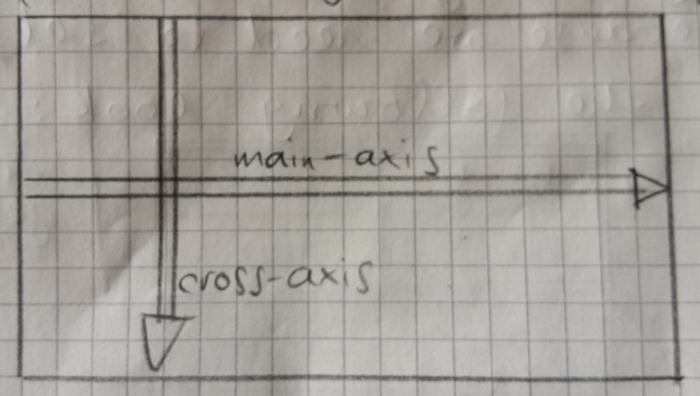 main-axis
cross-axis